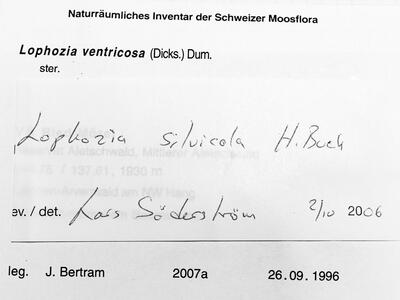 Naturräumliches Inventar der Schweizer Moosflora
Lophozia ventricosa (Dicks.) Dum.
ster.
Lophozia silvicola H. Buch
Aletschwald, Mittlerer
/ 137.61, 1930 m
am NW Hang
ev. / det. Lars Söderström 2/10 2006
leg. J. Bertram 2007a 26.09.1996